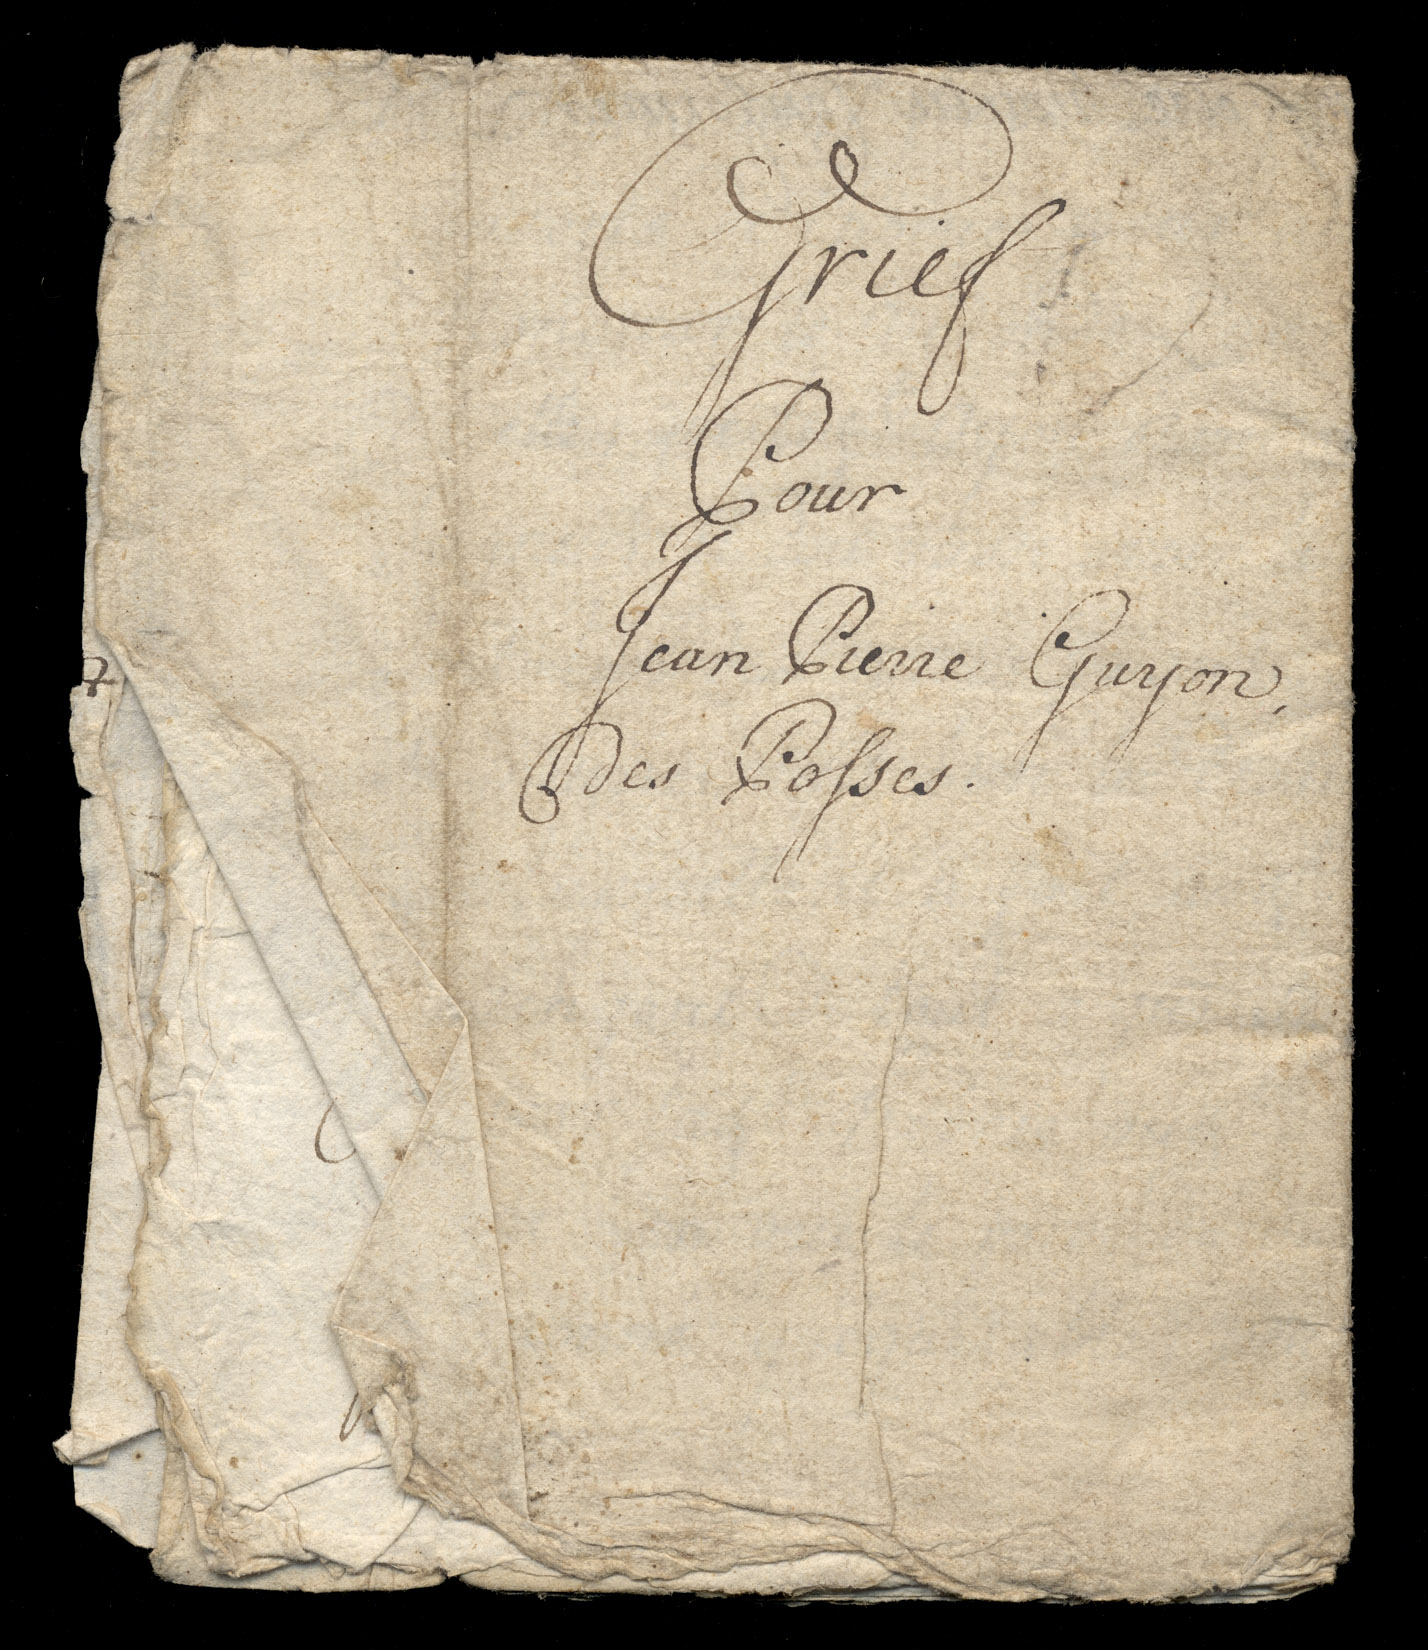 Grief
Pour
Jean Pierre Guyon,
des Posses.